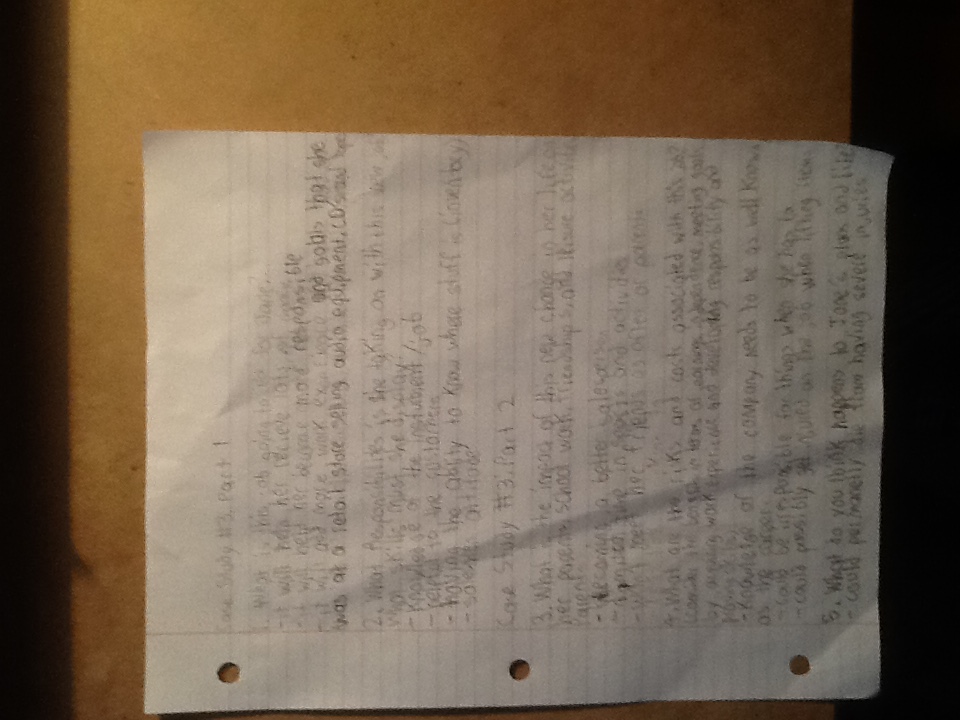 Case Study #3. Part 1
1. What is this job going to do for Jane?
-it will help her recieve lots of
-it will help her become more responsible
-it will add more work experience and goals that she
was at a retail store selling audio equipment, CD's and tapes
2. What Responsibilities is she taking on with this new job
What skills must she display?
-knowledge of the instument/job
-helpful to the customers
-having the ability to know where stuff is (inventory)
-sales attitude
Case Study #3. Part 2
3. What is the impact of this new change in her life on
her parents, school work, friendships, and leisure activities
Parents
-becoming a better salesperson
-limited time in sports and activities
-won't meet her friends as often or parents
4. What are the risks and costs associated with this job?
(consider the benefits in terms of earnings, independence, meeting goals
by acquiring work experience and developing responsibility and
-Knowledge of the company needs to be as well known
as the career.
-could be irresponsible for things when she has to
-could possibly get injured on the job when lifting items
5. What do you think happens to Jane's plans and life?
-could permanetly die from having severe injuries